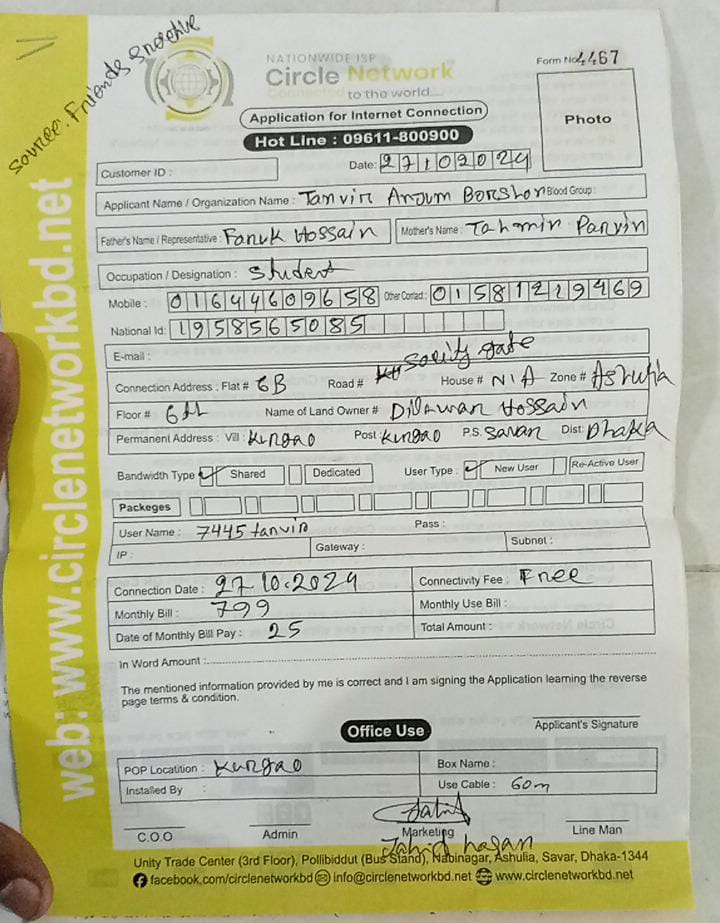 Source: Friends Knoctive
NATIONWIDE ISP
Form No 4467
Circle Network
Connected to the world....
Application for Internet Connection
Hot Line : 09611-800900
Photo
Customer ID :
Date: 27102024
Applicant Name / Organization Name : Tanvir Anjum Borshon Blood Group :
Father's Name / Representative : Faruk Hossain Mother's Name : Tahmin Parvin
Occupation / Designation : Student
Mobile : 01644609658 Other Contact : 01581229469
National Id: 1958565085
E-mail :
Connection Address : Flat # 6B Road # Society gate House # N/A Zone # Ashulia
Floor # 6th Name of Land Owner # Dilawar Hossain
Permanent Address : Vill : Kurgao Post : Kurgao P.S. Savar Dist: Dhaka
Bandwidth Type Shared Dedicated User Type : New User Re-Active User
Packeges
User Name : 7445tanvir Pass :
IP : Gateway : Subnet :
Connection Date : 27-10-2024 Connectivity Fee : Free
Monthly Bill : 799 Monthly Use Bill :
Date of Monthly Bill Pay : 25 Total Amount :
In Word Amount :
The mentioned information provided by me is correct and I am signing the Application learning the reverse
page terms & condition.
Applicant's Signature
Office Use
POP Locatition : Kurgao Box Name :
Installed By : Use Cable : 60m
C.O.O Admin Marketing Line Man
Jahid hasan
Unity Trade Center (3rd Floor), Pollibiddut (Bus Stand), Nabinagar, Ashulia, Savar, Dhaka-1344
facebook.com/circlenetworkbd info@circlenetworkbd.net www.circlenetworkbd.net
web: www.circlenetworkbd.net